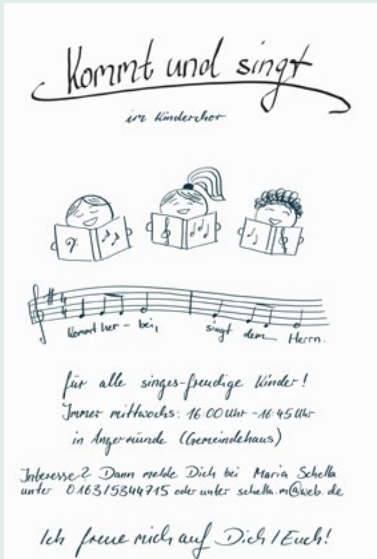 Kommt und singt
im Kinderchor
Kommt her - bei, singt dem Herrn.
für alle singes-freudige Kinder!
Immer mittwochs: 16:00 Uhr - 16:45 Uhr
in Angermünde (Gemeindehaus)
Interesse? Dann melde Dich bei Maria Schella
unter 0163/5344715 oder unter schella.m@web.de
Ich freue mich auf Dich / Euch!